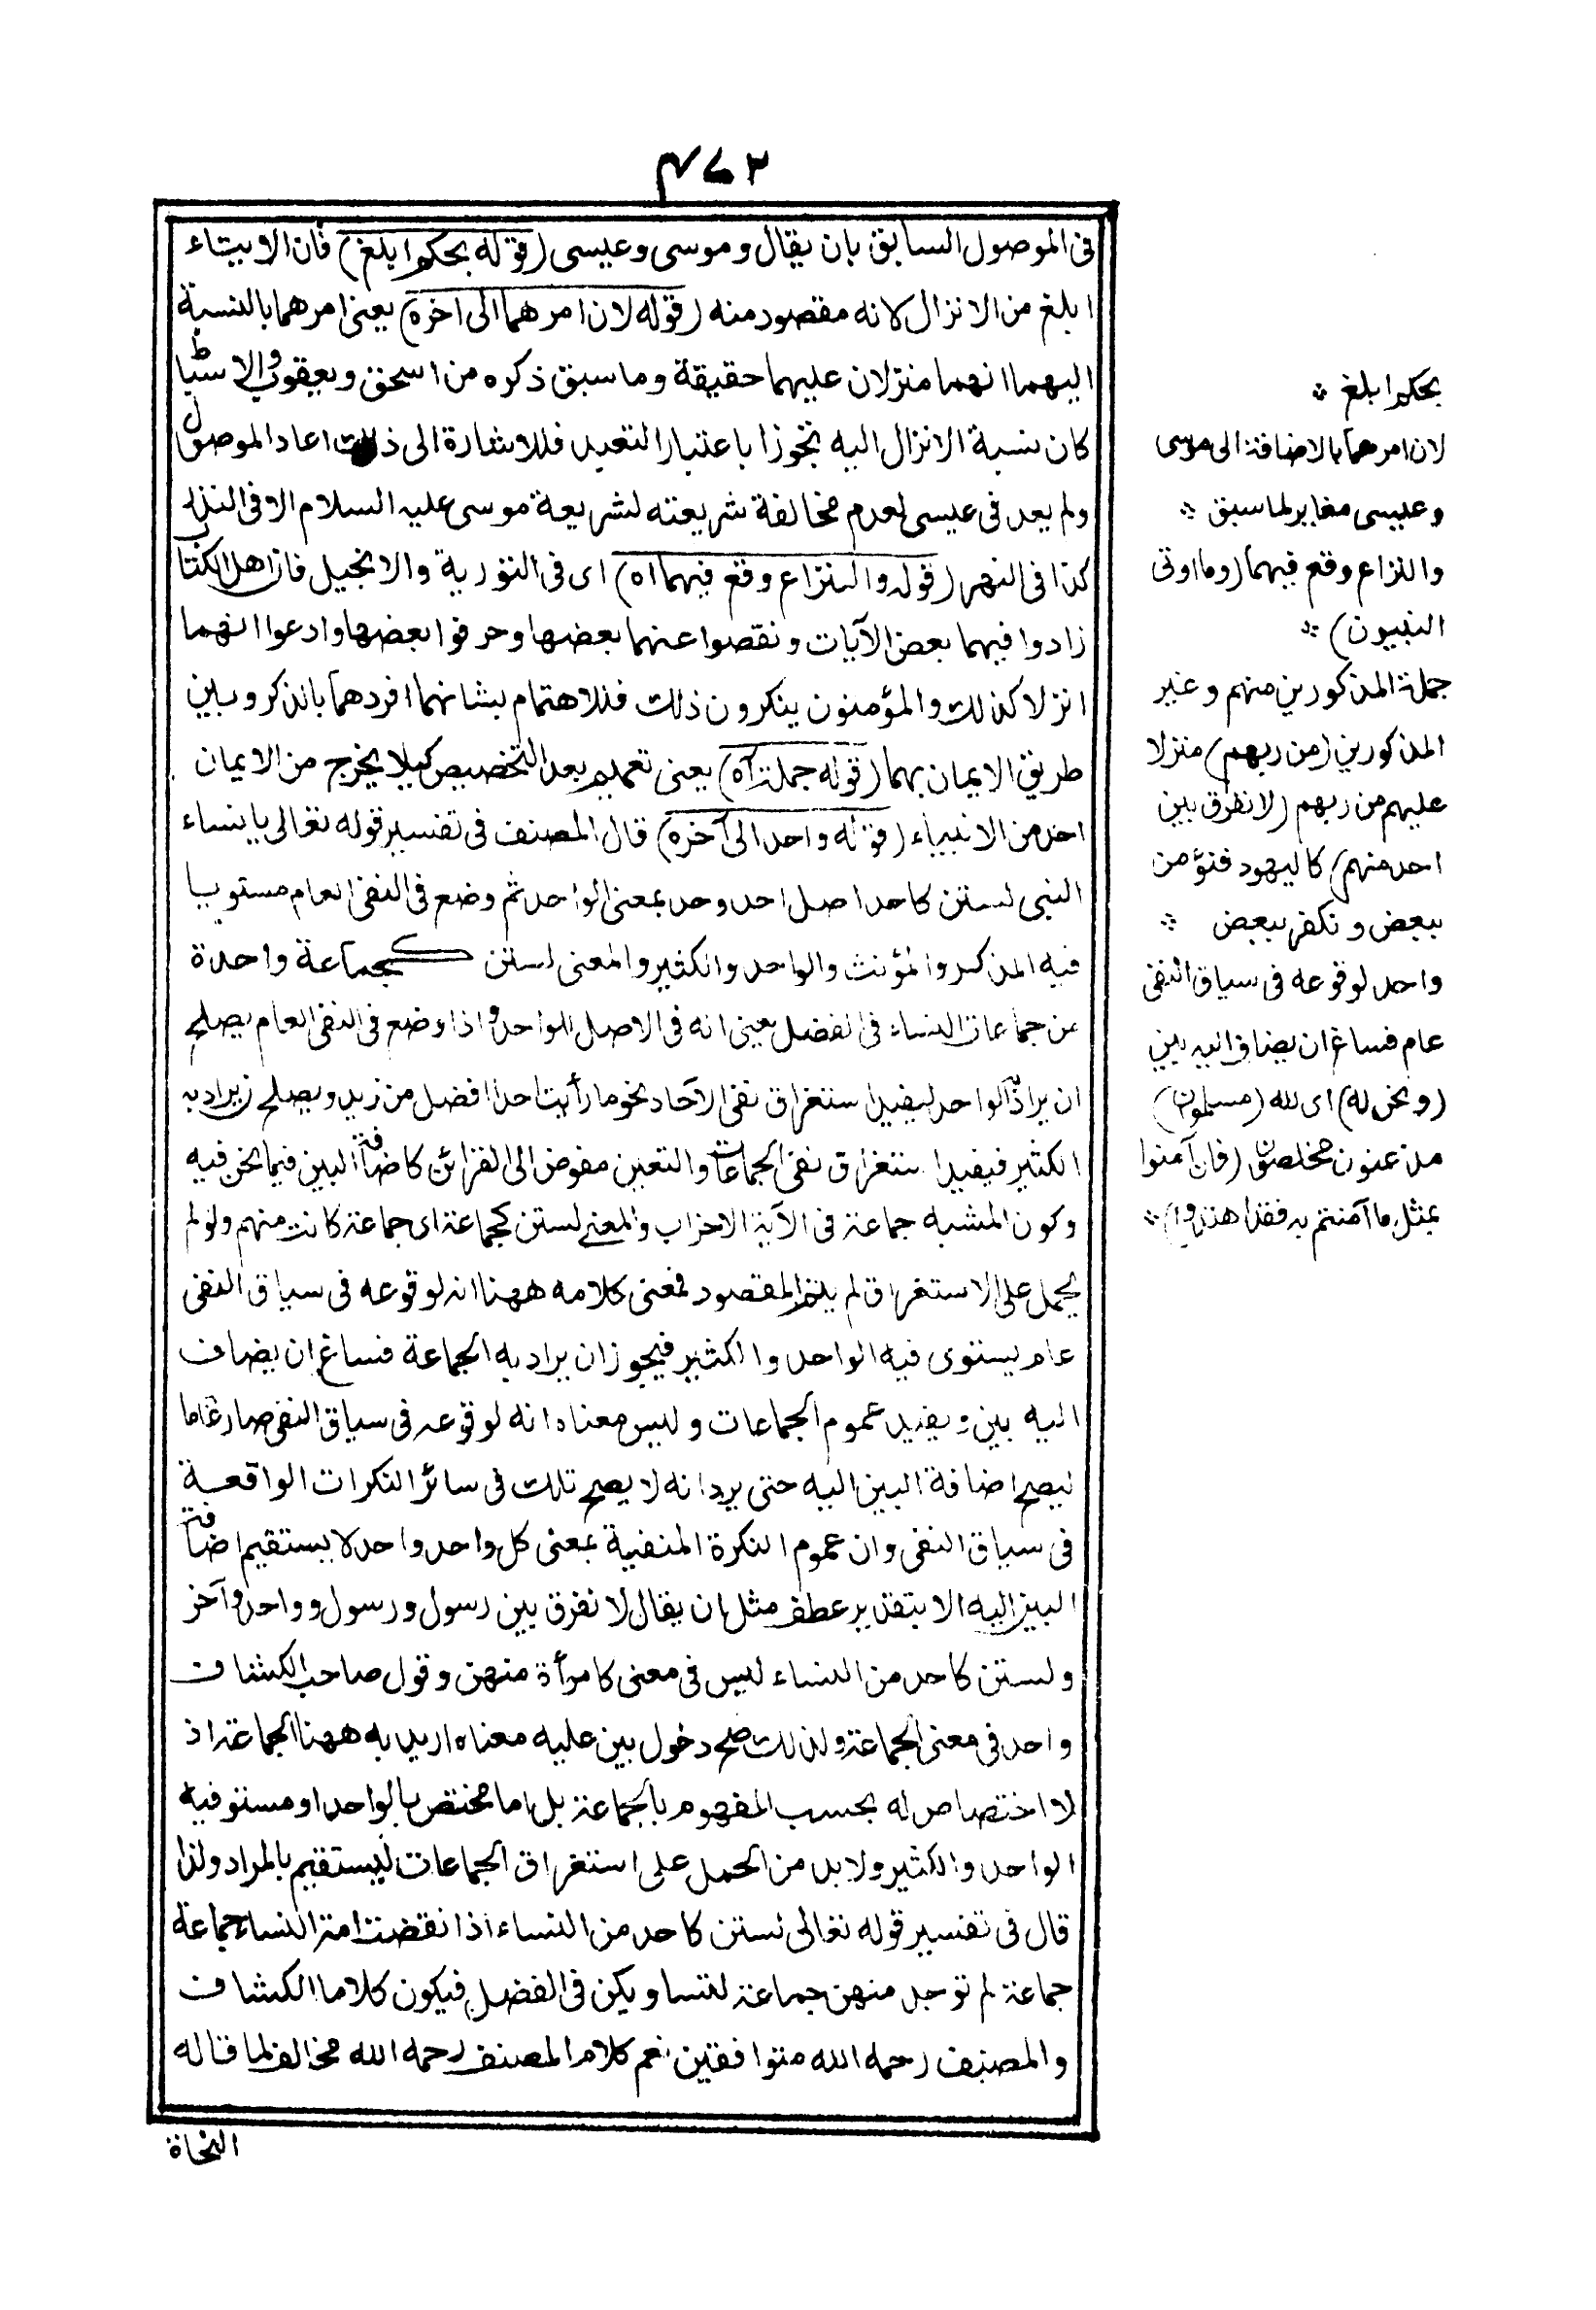 في الموصول السابق بان يقال وموسى وعيسى (قوله بحكم ابلغ) فان الايتاء
ابلغ من الانزال لانه مقصود منه (قوله لان امرهما الى اخره) يعني امرهما بالنسبة
اليهما انهما منزلان عليهما حقيقة وما سبق ذكره من اسحق ويعقوب والاسباط
كان نسبة الانزال اليه تجوزا باعتبار التعبد فللاشارة الى ذلك اعاد الموصول
ولم يعد في عيسى لعدم مخالفة شريعته لشريعة موسى عليه السلام الا في النزر
كذا في النهر (قوله والنزاع وقع فيهما اه) اى في التورية والانجيل فان اهل الكتاب
زادوا فيهما بعض الآيات ونقصوا عنهما بعضها وحرفوا بعضها وادعوا انهما
انزلا كذلك والمؤمنون ينكرون ذلك فللاهتمام بشانهما افردهما بالذكر وبين
طريق الايمان بهما (قوله جملة اه) يعنى تعميم بعد التخصيص كيلا يخرج من الايمان
احد من الانبياء (قوله واحد الى آخره) قال المصنف في تفسير قوله تعالى يا نساء
النبى لستن كاحد اصل احد وحد بمعنى الواحد ثم وضع في النفى العام مستويا
فيه المذكر والمؤنث والواحد والكثير والمعنى لستن كجماعة واحدة
من جماعات النساء في الفضل يعني انه في الاصل الواحد واذا وضع في النفى العام يصلح
ان يراد الواحد ليفيد استغراق نفى الآحاد نحو ما رأيت احدا افضل من زيد ويصلح ان يراد به
الكثير فيفيد استغراق نفى الجماعات والتعين مفوض الى القرائن كاضافة البين فيما نحن فيه
وكون المشبه جماعة في الآية الاخراب والمعنى لستن كجماعة اى جماعة كانت منهم ولو لم
يحمل على الاستغراق لم يلزم المقصود فمعنى كلامه ههنا انه لوقوعه في سياق النفى
عام يستوى فيه الواحد والكثير فيجوز ان يراد به الجماعة فساغ ان يضاف
اليه بين ويفيد عموم الجماعات وليس معناه انه لوقوعه في سياق النفى صار عاما
ليصح اضافة البين اليه حتى يرد انه لا يصح تلك في سائر النكرات الواقعة
في سياق النفى وان عموم النكرة المنفية بمعنى كل واحد واحد لا يستقيم اضافة
البين اليه الا بتقدير عطف مثل ان يقال لا نفرق بين رسول ورسول وواحد وآخر
ولستن كاحد من النساء ليس في معنى كامرأة منهن وقول صاحب الكشاف
واحد في معنى الجماعة ولذلك صلح دخول بين عليه معناه اريد به ههنا الجماعة اذ
لا اختصاص له بحسب المفهوم بالجماعة بل اما مختص بالواحد او مستو فيه
الواحد والكثير ولا بد من الحمل على استغراق الجماعات ليستقيم بالمراد ولذا
قال في تفسير قوله تعالى لستن كاحد من النساء اذا نقضت امة النساء جماعة
جماعة لم توجد منهن جماعة لتساويكن في الفضل فيكون كلاما الكشاف
والمصنف رحمه الله متوافقين نعم كلام المصنف رحمه الله مخالف لما قاله
النحاة
بحكم ابلغ
لان امرهما بالاضافة الى موسى
وعيسى مغاير لما سبق
والنزاع وقع فيهما (وما اوتى
النبيون)
جملة المذكورين منهم وغير
المذكورين (من ربهم) منزلا
عليهم من ربهم (لا نفرق بين
احد منهم) كاليهود فنؤمن
ببعض ونكفر ببعض
واحد لوقوعه في سياق النفى
عام فساغ ان يضاف اليه بين
(ونحن له) اى لله (مسلمون)
مذعنون مخلصون (فان آمنوا
بمثل ما آمنتم به فقد اهتدوا)